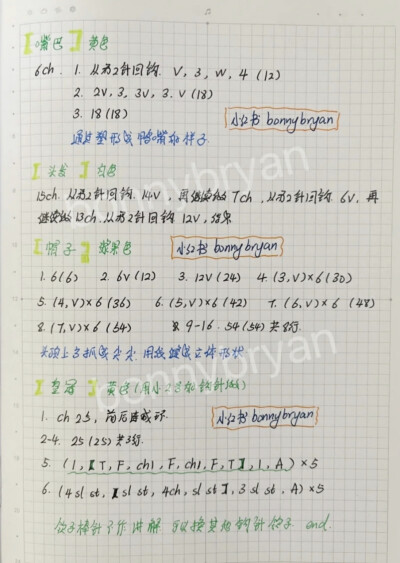 【嘴巴】黄色
6ch. 1. 从第2针回钩. V, 3, W, 4 (12)
2. 2V, 3, 3V, 3. V (18)
3. 18 (18)
小红书 bonnybryan
通过塑形成鸭嘴的样子.
【头发】白色
15ch. 从第2针回钩 14V, 再继续做 7ch, 从第2针回钩 6V, 再
继续做 13ch. 从第2针回钩 12V, 结束
【帽子】苹果色
小红书 bonnybryan
1. 6(6) 2. 6V (12) 3. 12V (24) 4. (3, V)×6 (30)
5. (4, V)×6 (36) 6. (5, V)×6 (42) 7. (6, V)×6 (48)
8. (7, V)×6 (54) 9-16. 54 (54) 共8行.
头顶上方抓成尖尖. 用线缝成立体形状
【皇冠】黄色 (用小2号
1. ch 25, 前后连成环.
小红书 bonnybryan
2-4. 25 (25) 共3行.
5. (1, 【T, F, ch1, F, ch1, F, T】, 1, A) ×5
6. (4 sl st, 【sl st, 4ch, sl st】, 3 sl st, A) ×5
饺子棒针不作讲解 可以换其他钩针饺子. end.
bonnybryan
bonnybryan
bonnybryan